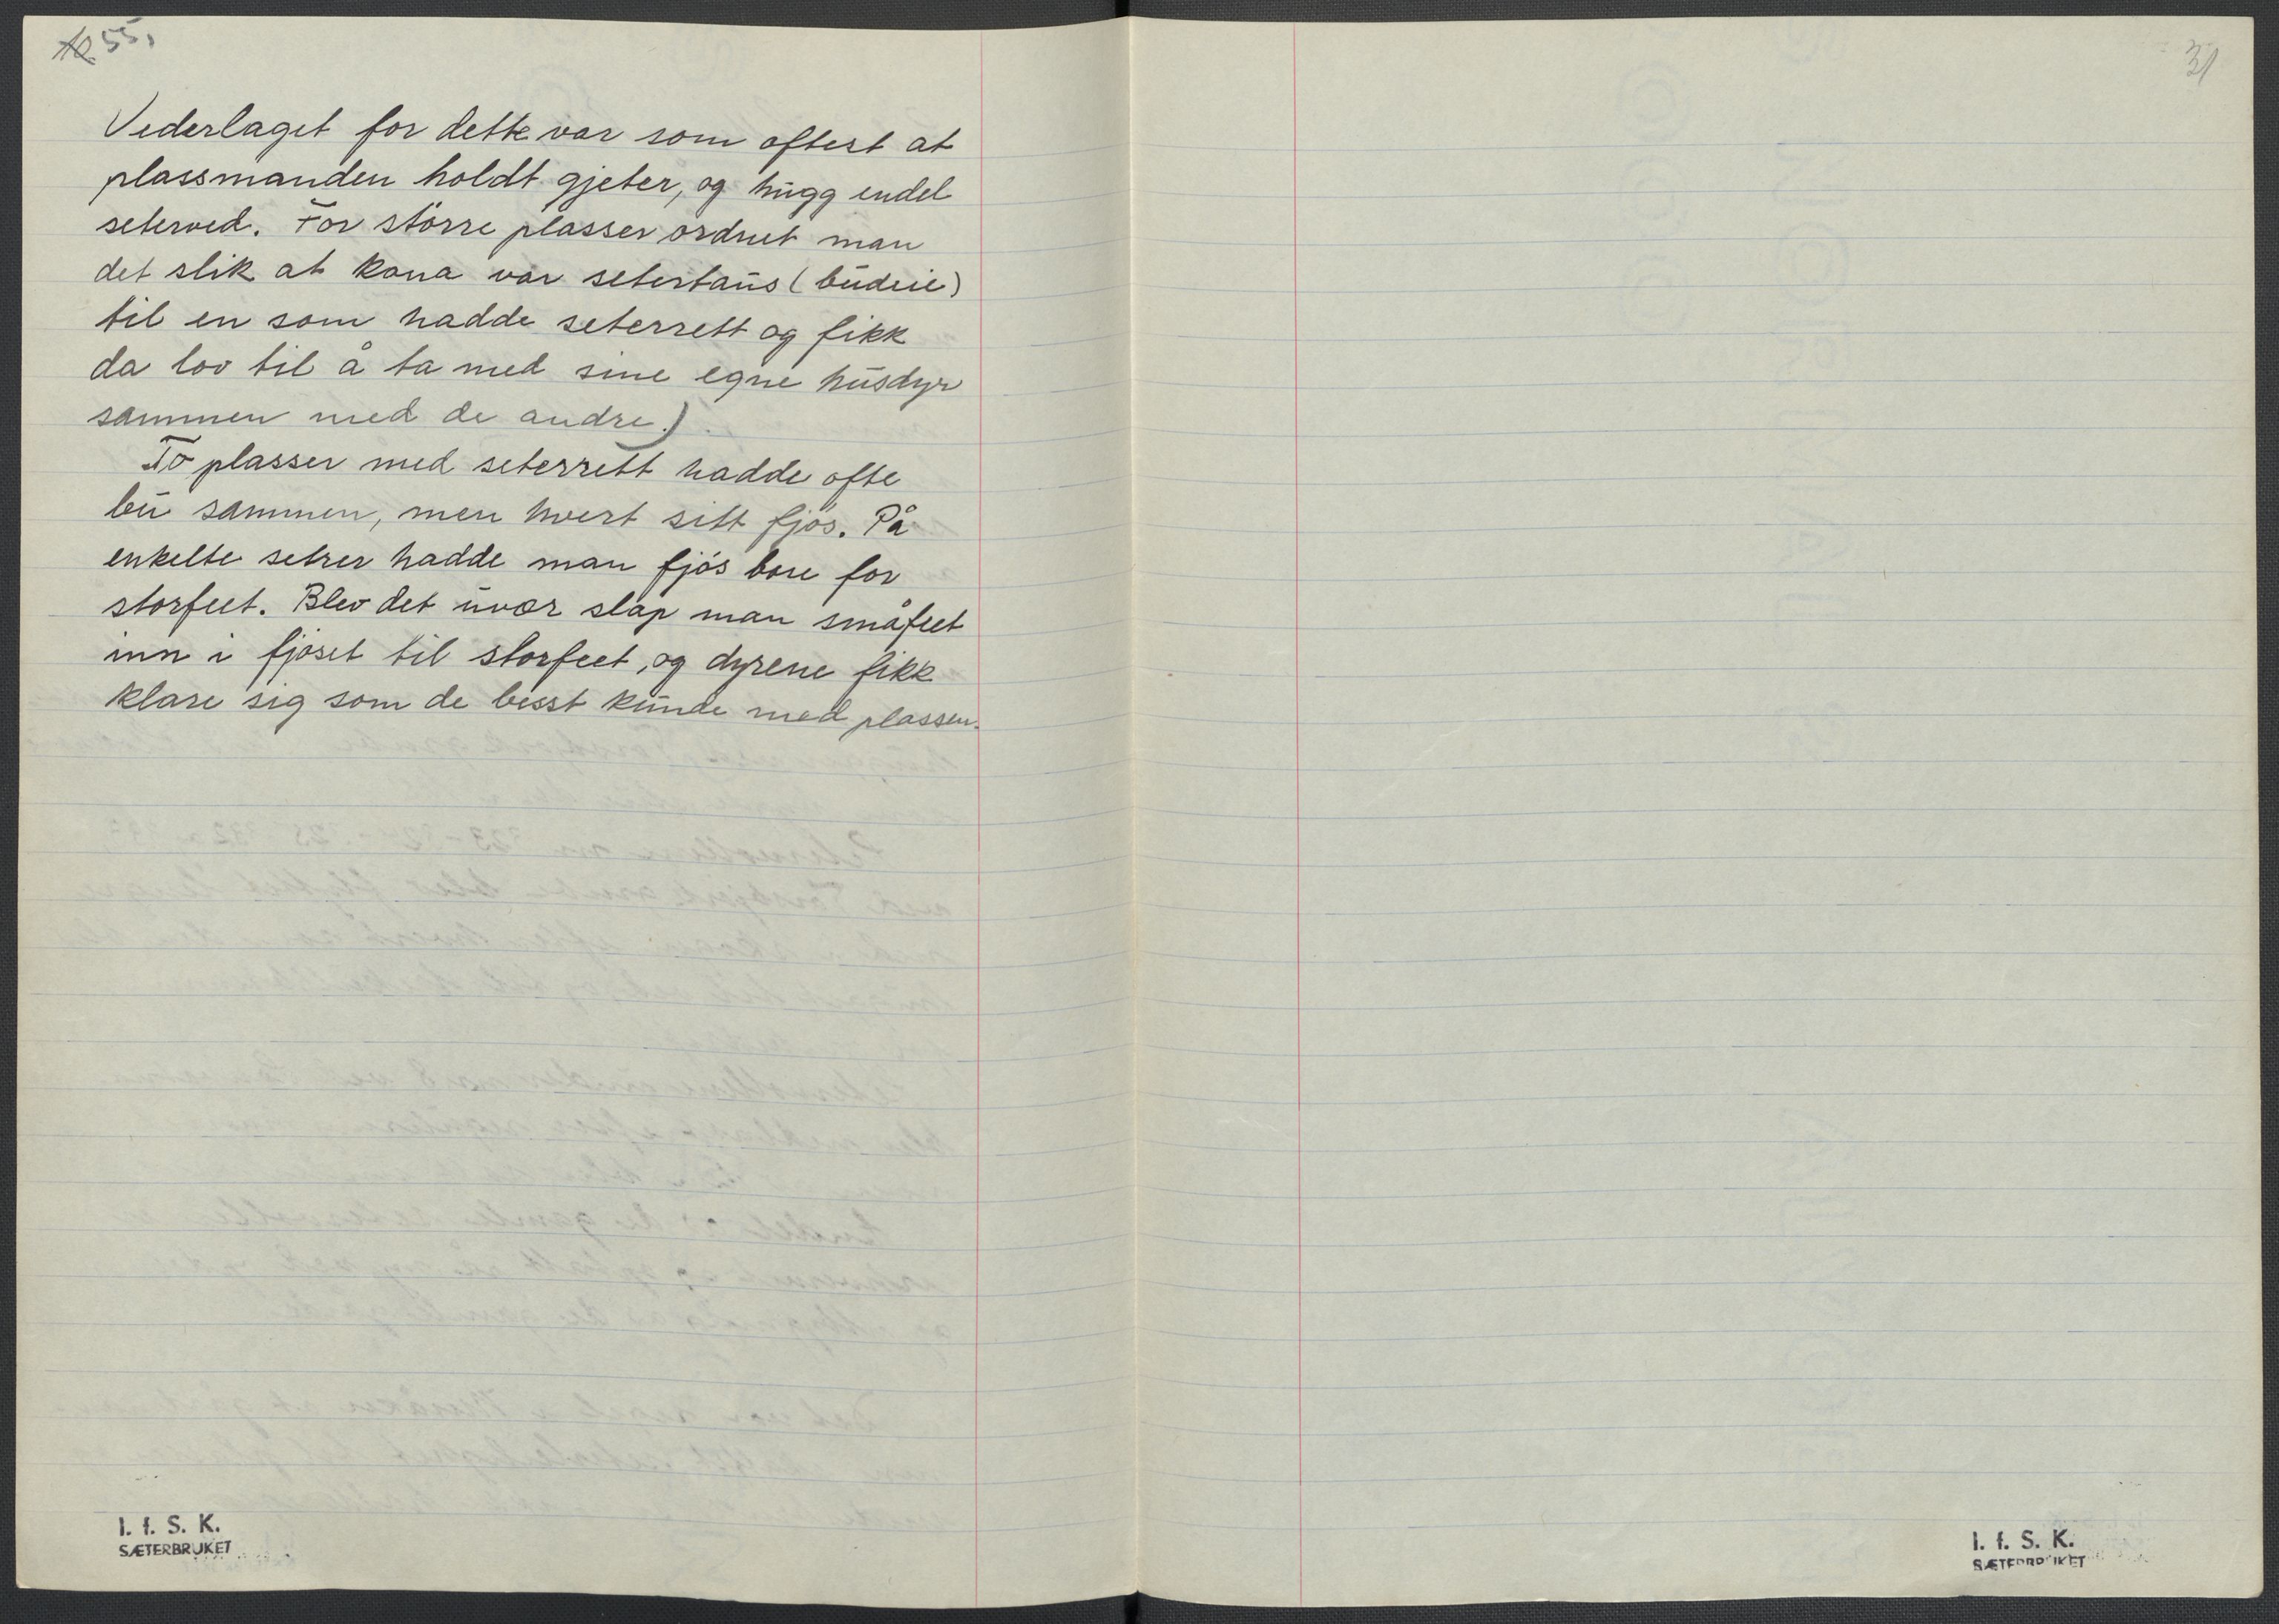 55.
Vederlaget for dette var som oftest at
plassmanden holdt gjeter, og hugg endel
seterved. For större plasser ordnet man
det slik at kona var setertaus (budeie)
til en som hadde seterrett og fikk
da lov til å ta med sine egne husdyr
sammen med de andre.)
To plasser med seterrett hadde ofte
bu sammen, men hvert sitt fjös. På
enkelte setrer hadde man fjös bare for
storfeet. Blev det uvær slap man småfeet
inn i fjöset til storfeet, og dyrene fikk
klare sig som de besst kunde med plassen.
I. f. S. K.
SÆTERBRUKET
31
I. f. S. K.
SÆTERBRUKET